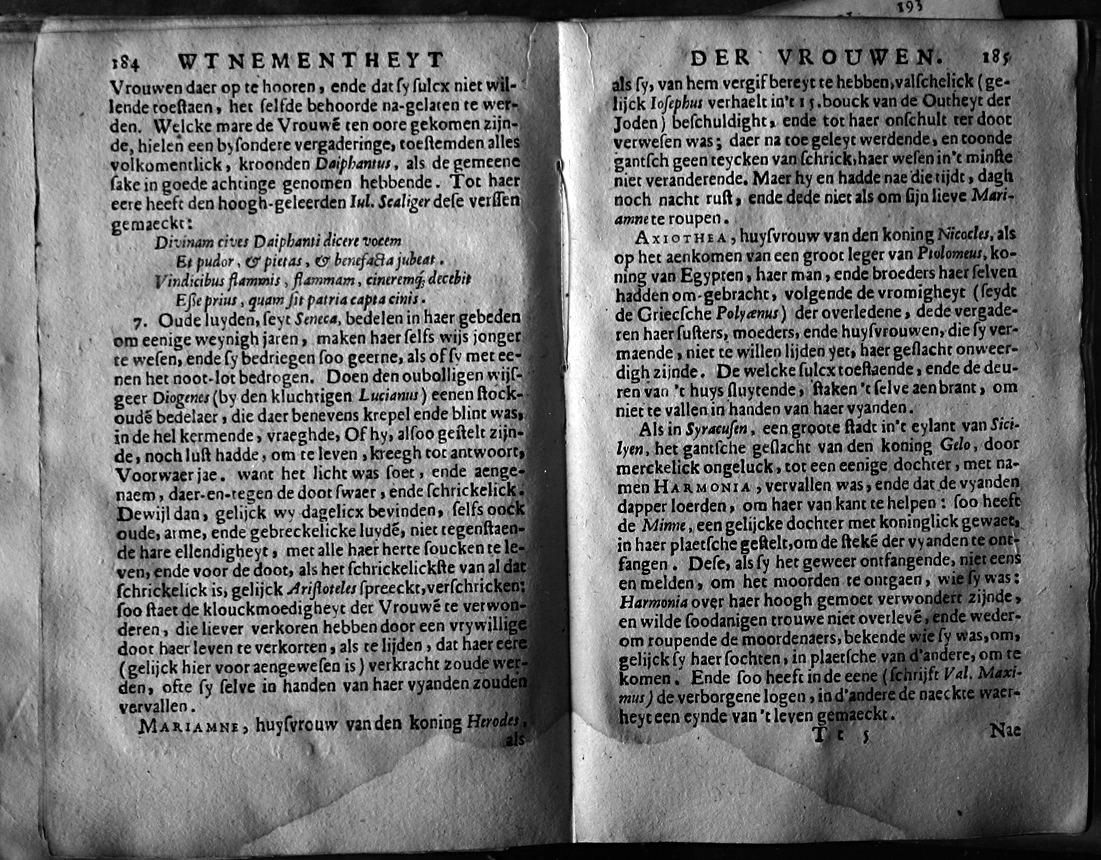 193
184 WTNEMENTHEYT
Vrouwen daer op te hooren, ende dat sy sulcx niet wil-
lende toestaen, het selfde behoorde na-gelaten te wer-
den. Welcke mare de Vrouwē ten oore gekomen zijn-
de, hielen een bysondere vergaderinge, toestemden alles
volkomentlick, kroonden Daiphantus, als de gemeene
sake in goede achtinge genomen hebbende. Tot haer
eere heeft den hoogh-geleerden Iul. Scaliger dese verssen
gemaeckt:
Divinam cives Daiphanti dicere vocem
Et pudor, & pietas, & benefacta jubeat.
Vindicibus flammis, flammam, cineremq; decebit
Esse prius, quam sit patria capta cinis.
7. Oude luyden, seyt Seneca, bedelen in haer gebeden
om eenige weynigh jaren, maken haer selfs wijs jonger
te wesen, ende sy bedriegen soo geerne, als of sy met ee-
nen het noot-lot bedrogen. Doen den oubolligen wijs-
geer Diogenes (by den kluchtigen Lucianus) eenen stock-
oudē bedelaer, die daer benevens krepel ende blint was,
in de hel kermende, vraeghde, Of hy, alsoo gestelt zijn-
de, noch lust hadde, om te leven, kreegh tot antwoort,
Voorwaer jae. want het licht was soet, ende aenge-
naem, daer-en-tegen de doot swaer, ende schrickelick.
Dewijl dan, gelijck wy dagelicx bevinden, selfs oock
oude, arme, ende gebreckelicke luydē, niet tegenstaen-
de hare ellendigheyt, met alle haer herte soucken te le-
ven, ende voor de doot, als het schrickelickste van al dat
schrickelick is, gelijck Aristoteles spreeckt, verschricken:
soo staet de klouckmoedigheyt der Vrouwē te verwon-
deren, die liever verkoren hebben door een vrywillige
doot haer leven te verkorten, als te lijden, dat haer eere
(gelijck hier voor aengewesen is) verkracht zoude wer-
den, ofte sy selve in handen van haer vyanden zouden
vervallen.
MARIAMNE, huysvrouw van den koning Herodes,
als
DER VROUWEN. 185
als sy, van hem vergif bereyt te hebben, valschelick (ge-
lijck Iosephus verhaelt in't 15. bouck van de Outheyt der
Joden) beschuldight, ende tot haer onschult ter doot
verwesen was; daer na toe geleyt werdende, en toonde
gantsch geen teycken van schrick, haer wesen in't minste
niet veranderende. Maer hy en hadde nae die tijdt, dagh
noch nacht rust, ende dede niet als om sijn lieve Mari-
amne te roupen.
AXIOTHEA, huysvrouw van den koning Nicocles, als
op het aenkomen van een groot leger van Ptolomeus, ko-
ning van Egypten, haer man, ende broeders haer selven
hadden om-gebracht, volgende de vromigheyt (seydt
de Griecsche Polyænus) der overledene, dede vergade-
ren haer susters, moeders, ende huysvrouwen, die sy ver-
maende, niet te willen lijden yet, haer geslacht onweer-
digh zijnde. De welcke sulcx toestaende, ende de deu-
ren van 't huys sluytende, staken 't selve aen brant, om
niet te vallen in handen van haer vyanden.
Als in Syracusen, een groote stadt in't eylant van Sici-
lyen, het gantsche geslacht van den koning Gelo, door
merckelick ongeluck, tot een eenige dochter, met na-
men HARMONIA, vervallen was, ende dat de vyanden
dapper loerden, om haer van kant te helpen: soo heeft
de Minne, een gelijcke dochter met koninglick gewaet,
in haer plaetsche gestelt, om de stekē der vyanden te ont-
fangen. Dese, als sy het geweer ontfangende, niet eens
en melden, om het moorden te ontgaen, wie sy was:
Harmonia over haer hoogh gemoet verwondert zijnde,
en wilde soodanigen trouwe niet overlevē, ende weder-
om roupende de moordenaers, bekende wie sy was, om,
gelijck sy haer sochten, in plaetsche van d'andere, om te
komen. Ende soo heeft in de eene (schrijft Val. Maxi-
mus) de verborgene logen, in d'andere de naeckte waer-
heyt een eynde van 't leven gemaeckt.
Tt 5 Nae